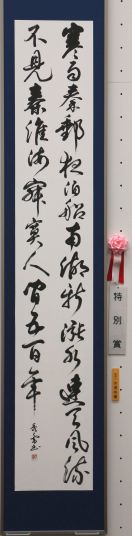 寒雨秦郵夜泊船南湖新漲水連天風流
不見秦淮海寂寞人間五百年
特別賞